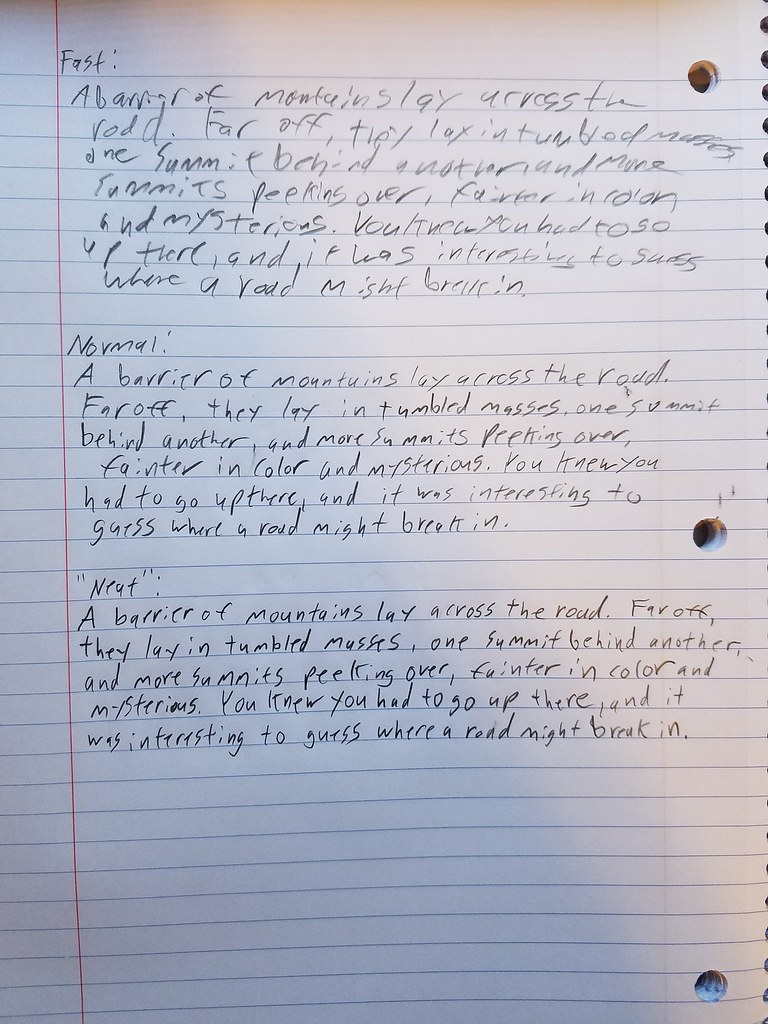 Fast:
A barrier of montains lay across the
road. Far off, they lay in tumbled masses
one summit behind another, and more
summits peeking over, fainter in color,
and mysterious. You knew you had to go
up there, and it was interesting to guess
where a road might break in.
Normal:
A barrier of mountains lay across the road.
Far off, they lay in tumbled masses, one summit
behind another, and more summits peeking over,
fainter in color and mysterious. You knew you
had to go up there, and it was interesting to
guess where a road might break in.
"Neat":
A barrier of mountains lay across the road. Far off,
they lay in tumbled masses, one summit behind another,
and more summits peeking over, fainter in color and
mysterious. You knew you had to go up there, and it
was interesting to guess where a road might break in.